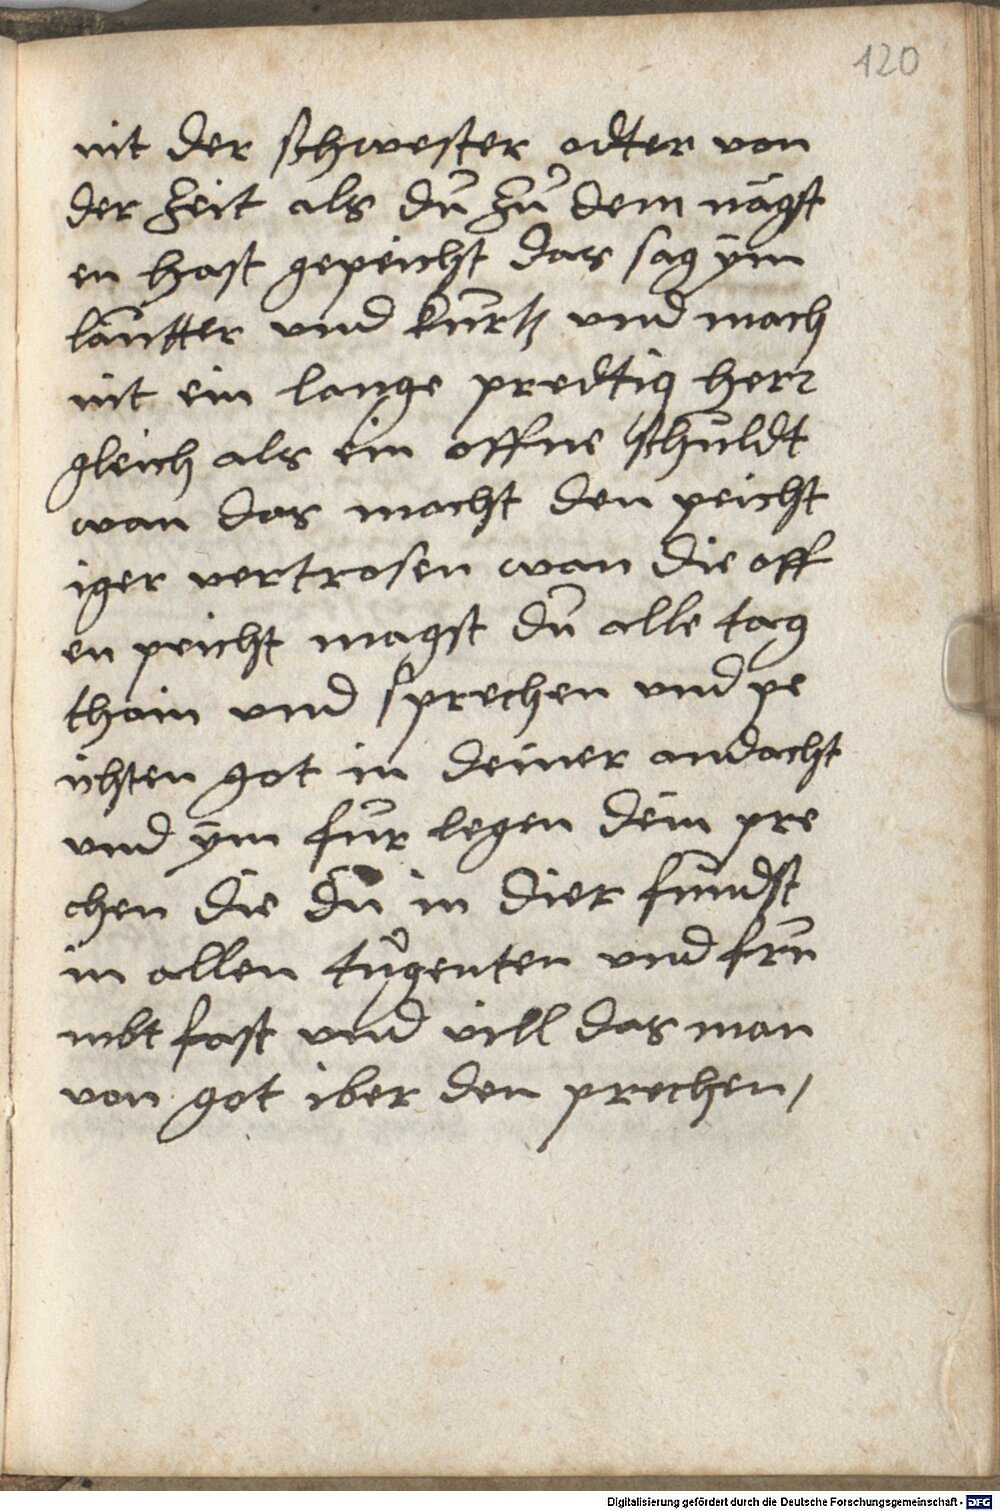 120
nit der schwester odter von
der zeit als du zu dem nägst
en hast gepeicht das sag ym
lautter vnd kurtz vnd mach
nit ein lange predtig herr
gleich als ein offne schuldt
wan das macht den peicht
iger vertrosen wan die off
en peicht magst du alle tag
thain vnd sprechen vnd pe
ichsten got in deiner andacht
vnd ym fur legen dein pre
chen die du in dier fundst
in allen tugenten vnd fru
mbt fast vnd vill das man
von got iber den prechen /
Digitalisierung gefördert durch die Deutsche Forschungsgemeinschaft - DFG